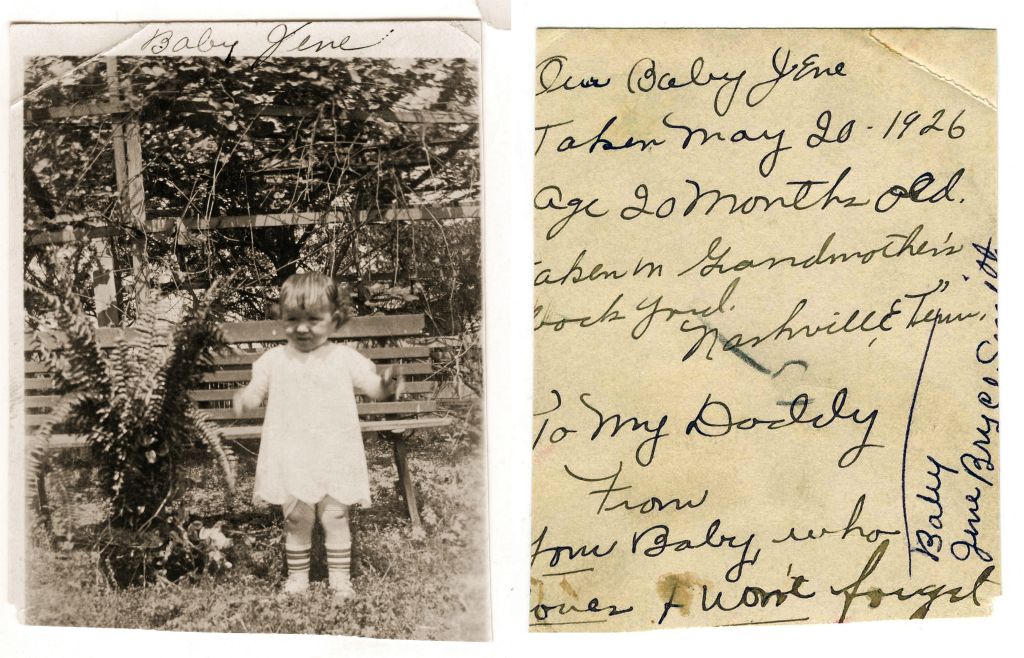 Baby Jene
Our Baby Jene
Taken May 20 - 1926
age 20 Months old.
taken in Grandmother's
back yard.
Nashville, Tenn.
To My Daddy
From
your Baby, who
loves & won't forget
Baby
Jene Bryce Smith